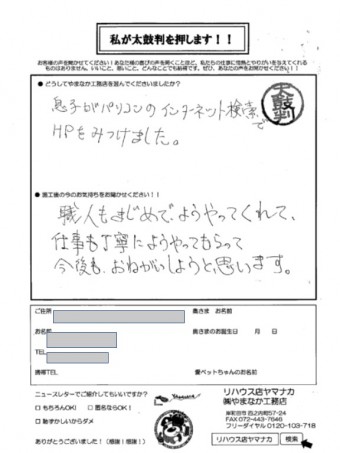 私が太鼓判を押します！！
お客様の声を聞かせてください！あなた様の喜びの声を聞くことほど、私たちの仕事に情熱とやりがいを与えてくれる
ものはありません。いいこと、悪いこと、どんなことでも結構です。ぜひ、あなたの声をお聞かせください！！
● どうしてやまなか工務店を選んでくださいましたか？
息子がパソコンのインターネット検索で
HPをみつけました。
太鼓判
● 施工後の今のお気持ちをお聞かせください！！
職人もまじめで、ようやってくれて、
仕事も丁寧にようやってもらって
今後も、おねがいしようと思います。
ご住所
奥さま お名前
お名前
奥さまのお誕生日 月 日
TEL
携帯TEL
愛ペットちゃんのお名前
ニュースレターでご紹介してもいいですか？
□ もちろんOK! □ 匿名ならOK!
□ 恥ずかしいからダメ
ありがとうございました！（感謝！感謝！）
リハウス店ヤマナカ
㈱やまなか工務店
FAX 072-443-7646
フリーダイヤル 0120-103-718
リハウス店ヤマナカ 検索